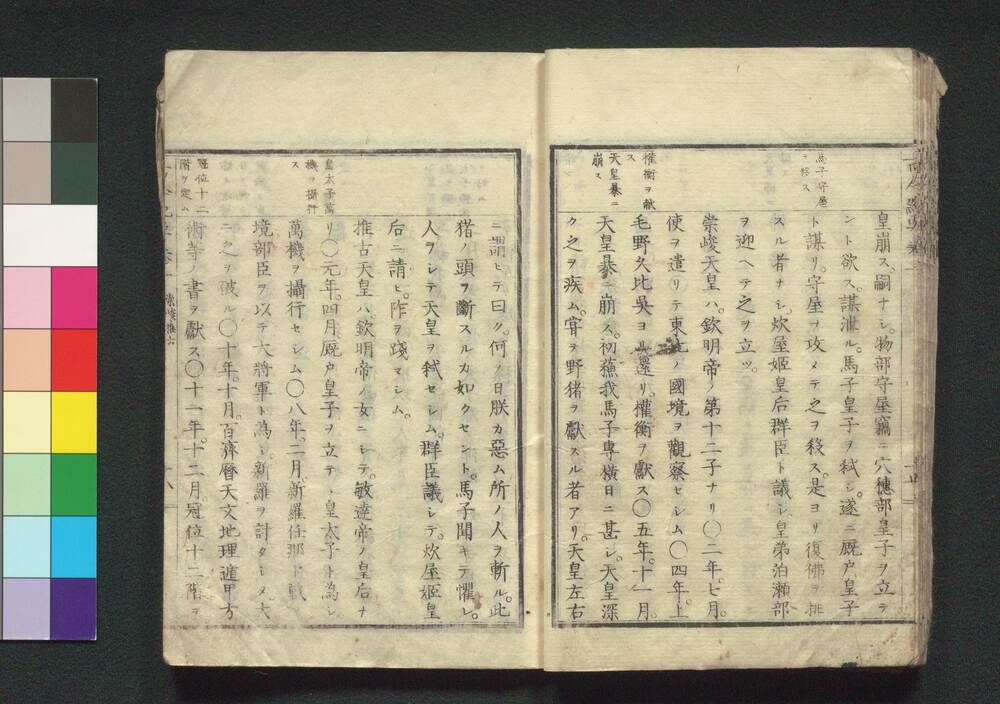 馬子守屋
ヲ殺ス
皇崩ス。嗣ナシ。物部守屋竊ニ穴穗部皇子ヲ立テ
ント欲ス。謀泄ル。馬子皇子ヲ弑シ。遂ニ厩戸皇子
ト謀リ。守屋ヲ攻メテ之ヲ殺ス。是ヨリ復佛ヲ排
スル者ナシ。炊屋姬皇后群臣ト議シ皇弟泊瀬部
ヲ迎ヘテ之ヲ立ツ。
崇峻天皇ハ。欽明帝ノ第十二子ナリ〇二年。七月。
使ヲ遣リテ東北ノ國境ヲ觀察セシム〇四年。上
權衡ヲ獻
ス
毛野久比吳ヨリ還リ。權衡ヲ獻ス〇五年。十一月。
天皇暴ニ
崩ス
天皇暴ニ崩ス。初蘇我馬子專橫日ニ甚シ。天皇深
ク之ヲ疾ム。甞テ野猪ヲ獻スル者アリ。天皇左右
ニ謂ヒテ曰ク。何ノ日朕カ惡ム所ノ人ヲ斬ル。此
猪ノ頭ヲ斷スルカ如クセント。馬子聞キテ懼レ。
人ヲシテ天皇ヲ弑セシム。群臣議シテ。炊屋姬皇
后ニ請ヒ。阼ヲ踐マシム。
推古天皇ハ。欽明帝ノ女ニシテ。敏達帝ノ皇后ナ
皇太子萬
機ヲ攝行
ス
リ〇元年。四月厩戸皇子ヲ立テヽ皇太子ト為シ。
萬機ヲ攝行セシム〇八年。二月。新羅任那ト戰フ
境部臣ヲ以テ大將軍ト為シ。新羅ヲ討タシメ。大
ニ之ヲ破ル〇十年。十月。百濟曆天文地理遁甲方
冠位十二
階ヲ定ム
術等ノ書ヲ獻ス〇十一年。十二月。冠位十二階ヲ
崇峻推古
十八